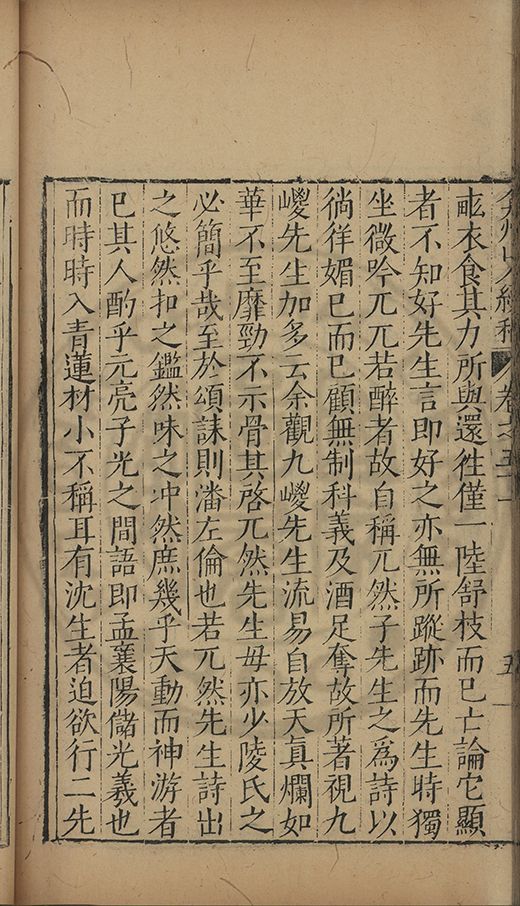 畞衣食其力所與還徃僅一陸舒枝而已亡論它顯
者不知好先生言即好之亦無所蹤跡而先生時獨
坐微吟兀兀若醉者故自稱兀然子先生之為詩以
徜徉媚已而已顧無制科義及酒足奪故所著視九
嵏先生加多云余觀九嵏先生流易自放天真爛如
華不至靡勁不示骨其啓兀然先生毋亦少陵氏之
必簡乎哉至於頌誄則潘左倫也若兀然先生詩出
之悠然扣之鏗然味之冲然庶幾乎天動而神游者
已其人酌乎元亮子光之間語即孟襄陽儲光羲也
而時時入青蓮材小不稱耳有沈生者迫欲行二先